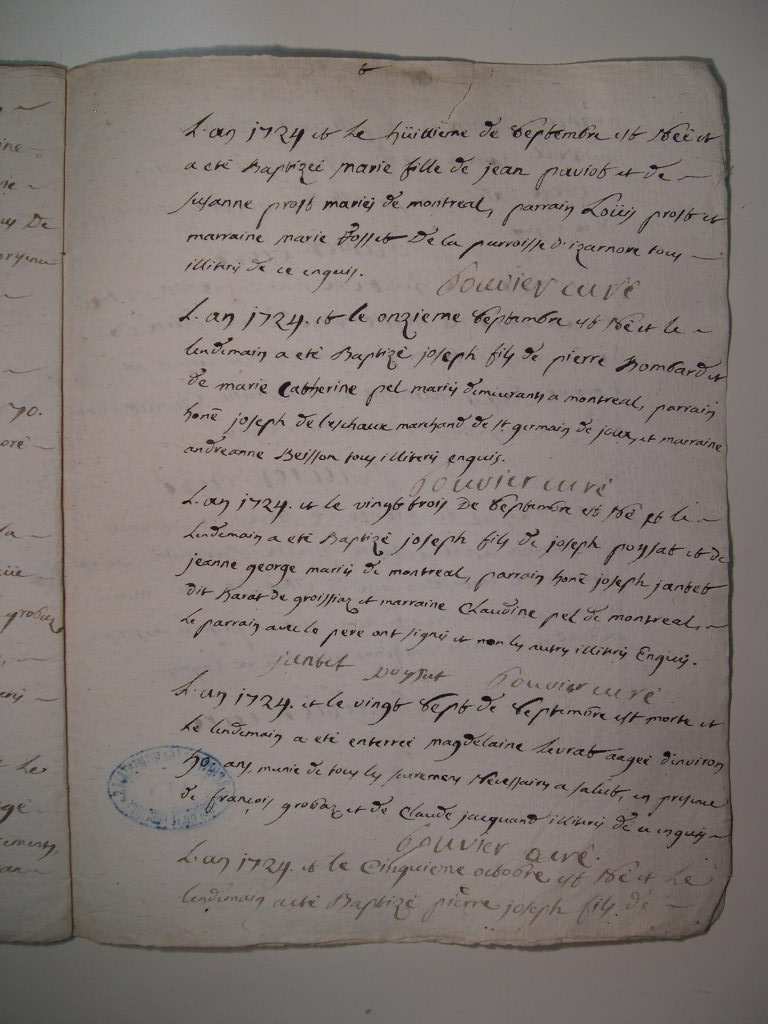 L'an 1724 et le hüitième de Septembre est Née et
a eté Baptizeé marie fille de jean paviot et de
susanne prost mariés de montreal, parrain Loüis prost et
marraine marie Josset de la parroisse d'izarnore tous
illiterés de ce enquis.
bouvier curé
L'an 1724. et le onzieme Septembre est Né et le
lendemain a eté Baptizé joseph fils de pierre hombard et
de marie Catherine pel mariés demeurants a montreal, parrain
honé joseph de leschaux marchand de st germain de joux, et marraine
andreanne Beisson tous illiterés enquis.
bouvier curé
L'an 1724. et le vingt trois De Septembre est Né et le
Lendemain a eté Baptizé joseph fils de joseph poysat et de
jeanne george mariés de montreal, parrain honé joseph jantet
dit de groissiaz et marraine Claudine pel de montreal,
Le parrain avec le pere ont signés et non les autres illiterés Enquis.
jantet poysat bouvier curé
L'an 1724. et le vingt Sept de Septembre est morte et
Le lendemain a eté enterreé magdelaine Levrat aageé d'environ
ans, munie de tous les sacremens Nécessaires a salut, en presence
de françois grobaz et de Claude jacquand illiterés de ce enquis
bouvier curé.
L'an 1724. et le Cinquieme octobre est Né et Le
lendemain a eté Baptizé pierre joseph fils de